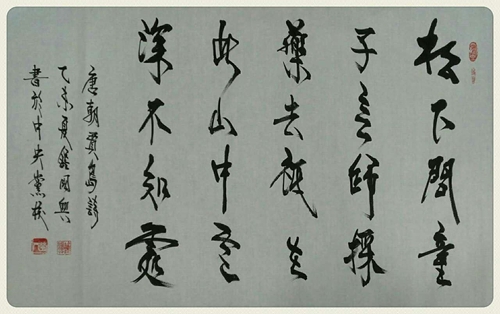 松下問童
子言師採
藥去祗在
此山中雲
深不知處
唐朝賈島詩
乙未夏
書於中央黨校